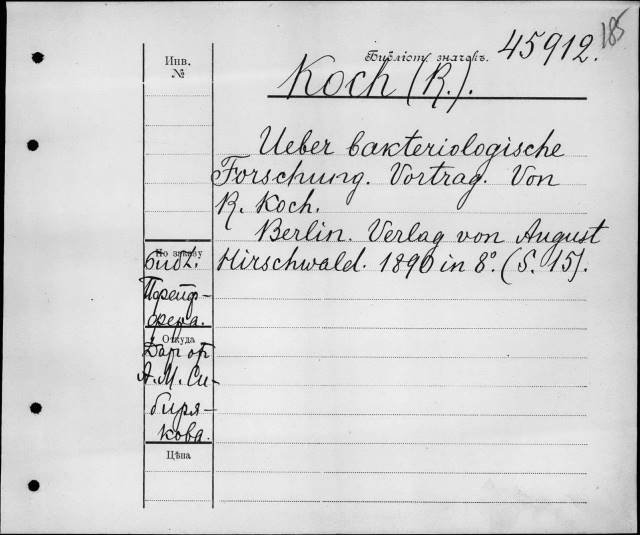 185
Библіот. значокъ. 45912.
Инв.
№
Koch (R.).
Ueber bakteriologische
Forschung. Vortrag. Von
R. Koch.
Berlin. Verlag von August
Hirschwald. 1890 in 8°. (S. 15).
По заказу
библ.
Пфейф-
фера.
Откуда
Дар от
А. М. Си-
биря-
кова.
Цѣна